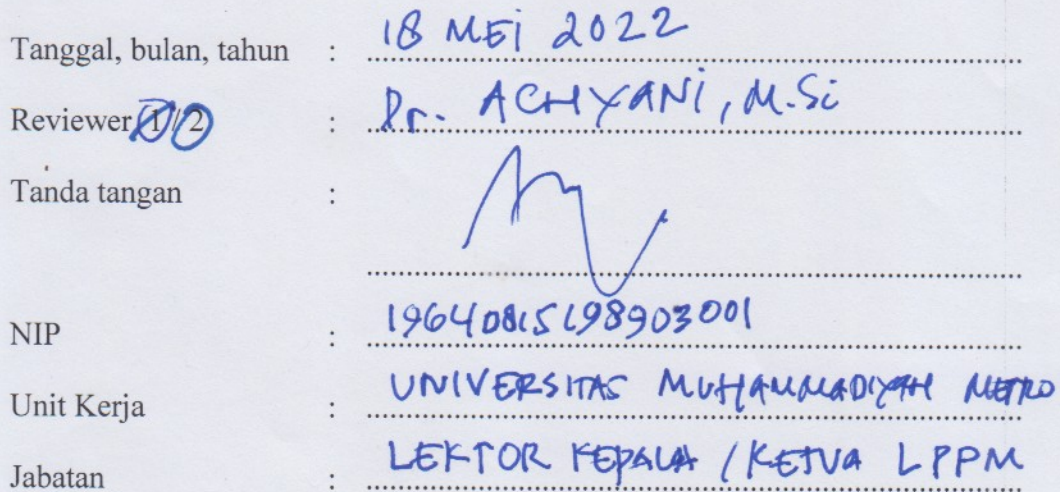 Tanggal, bulan, tahun : 18 MEi 2022
Reviewer 1 / 2 : Dr. ACHYANi, M.Si
Tanda tangan :
NIP : 19640815198903001
Unit Kerja : UNIVERSITAS MUHAMMADIYAH METRO
Jabatan : LEKTOR KEPALA / KETUA LPPM